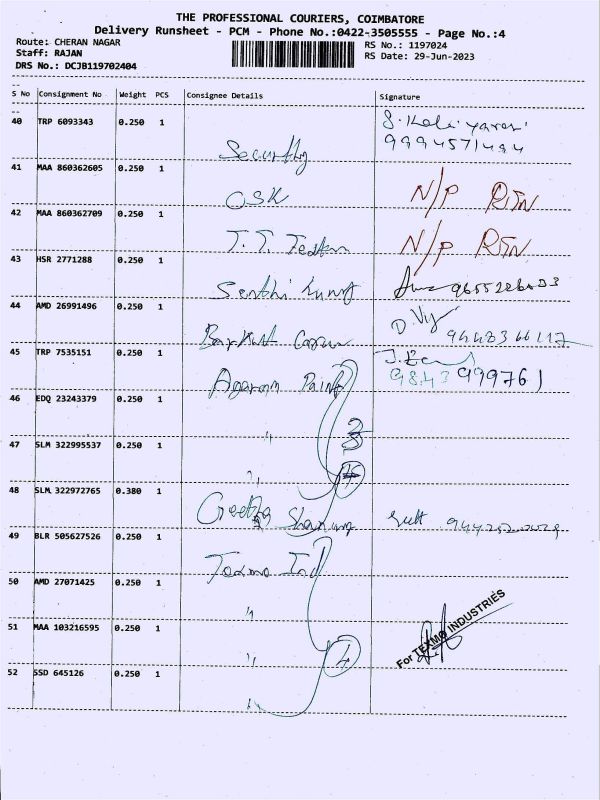 THE PROFESSIONAL COURIERS, COIMBATORE
Delivery Runsheet - PCM - Phone No.:0422-3505555 - Page No.:4
Route: CHERAN NAGAR
RS No.: 1197024
Staff: RAJAN
RS Date: 29-Jun-2023
DRS No.: DCJB119702404
S No Consignment No Weight PCS Consignee Details Signature
40 TRP 6093343 0.250 1 Security 9994571494
41 MAA 860362605 0.250 1 OSK N/P RTN
42 MAA 860362709 0.250 1 T.T. N/P RTN
43 HSR 2771288 0.250 1 Senthi
44 AMD 26991496 0.250 1
45 TRP 7535151 0.250 1 Agaram Paint 9843999761
46 EDQ 23243379 0.250 1 "
47 SLM 322995537 0.250 1 "
48 SLM 322972765 0.380 1
49 BLR 505627526 0.250 1 Texmo Ind
50 AMD 27071425 0.250 1 "
51 MAA 103216595 0.250 1 " 4
For TEXMO INDUSTRIES
52 SSD 645126 0.250 1 "